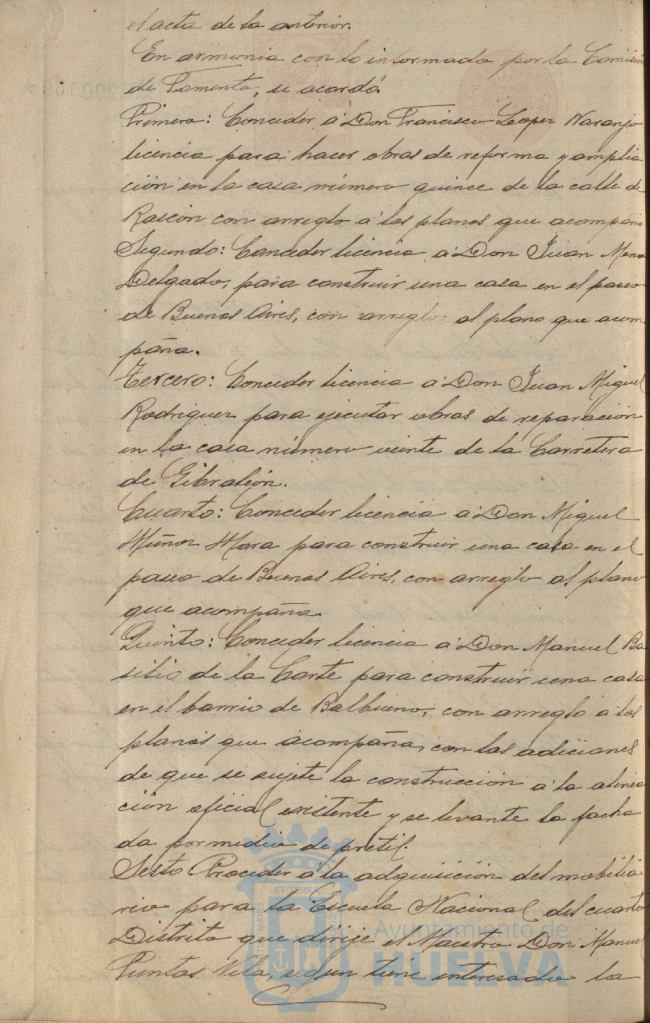 el acta de la anterior.
En armonia con lo informado por la Comisión
de Fomento, se acordó
Primero: Conceder á Don Francisco Lopez Naranjo
licencia para hacer obras de reforma y amplia
ción en la casa número quince de la calle de
Rascón con arreglo á los planos que acompaña
Segundo: Conceder licencia á Don Juan Mena
Delgado, para construir una casa en el paseo
de Buenos Aires, con arreglo al plano que acom
paña.
Tercero: Conceder licencia á Don Juan Miguel
Rodriguez para ejecutar obras de reparación
en la casa número veinte de la Carretera
de Gibraleón.
Cuarto: Conceder licencia á Don Miguel
Muñoz Mora para construir una casa en el
paseo de Buenos Aires, con arreglo al plano
que acompaña
Quinto: Conceder licencia á Don Manuel Ba
silio de la Corte para construir una casa
en el barrio de Balbueno, con arreglo á los
planos que acompaña, con las adiciones
de que se sujete la construcción á la alinea
ción oficial existente y se levante la facha
da por medio de pretil.
Sexto. Proceder á la adquisición del mobilia
rio para la Escuela Nacional del cuarto
Distrito que dirije el Maestro Don Manuel
Puntas Vela, segun tiene interesado la
Ayuntamiento de
HUELVA